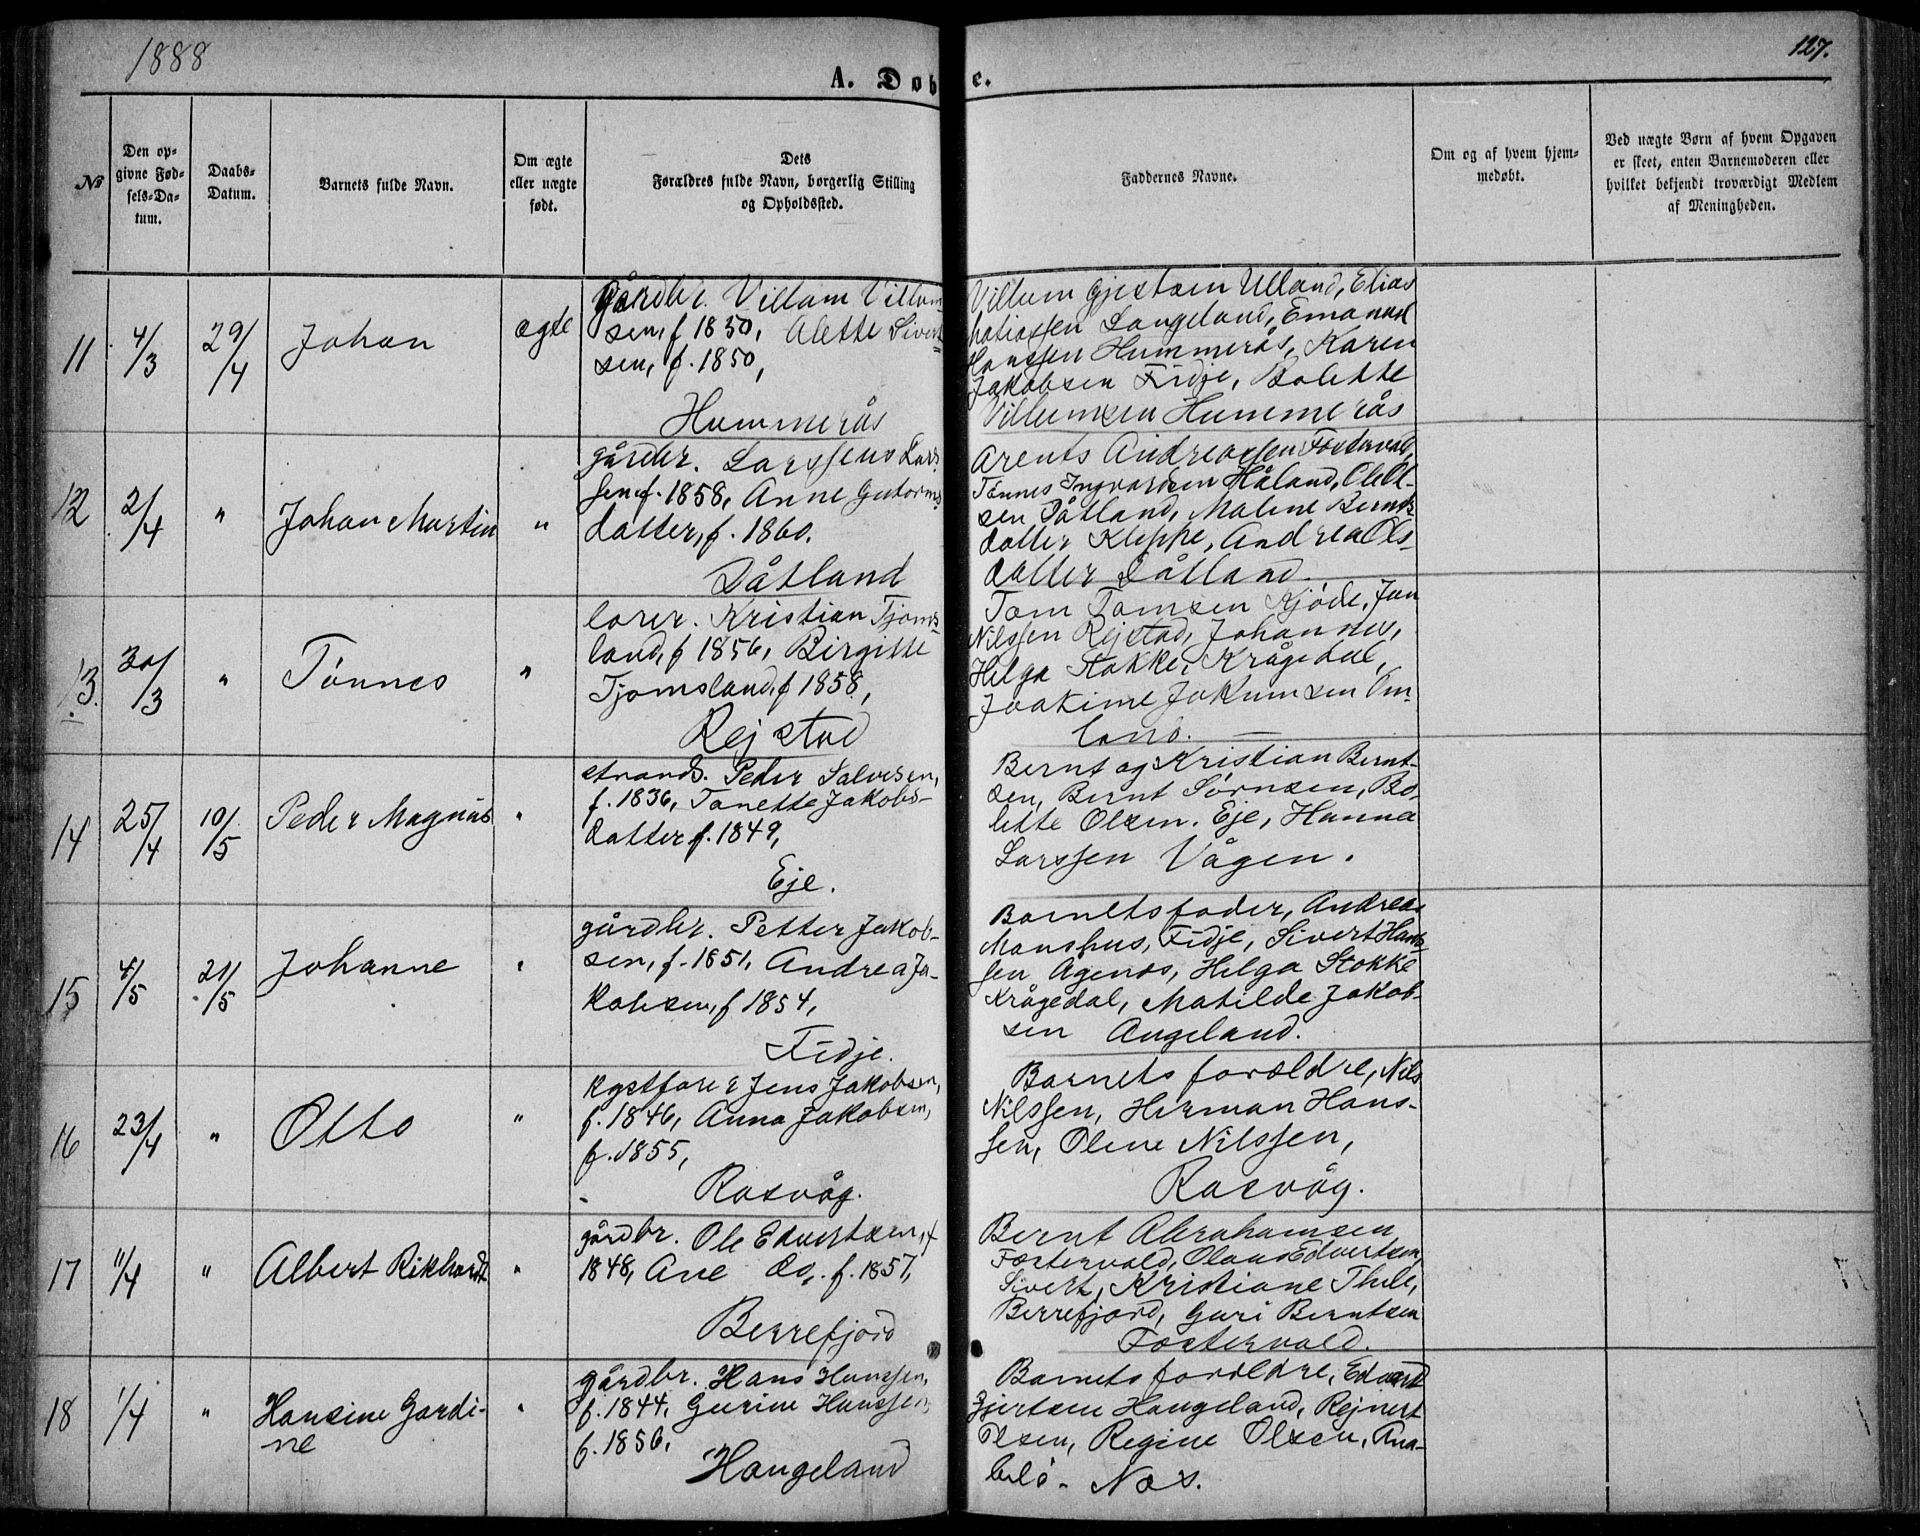 1888
127.
A. Døbte.
No
Den op-
givne Fød-
sels-Da-
tum.
Daabs-
Datum.
Barnets fulde Navn.
Om ægte
eller uægte
født.
Dets
Forældres fulde Navn, borgerlig Stilling
og Opholdssted.
Faddernes Navne.
Om og af hvem hjem-
medøbt.
Ved uægte Børn af hvem Opgaven
er skeet, enten Barnemoderen eller
hvilket bekjendt troværdigt Medlem
af Menigheden.
11
4/3
29/4
Johan
ægte
gårdbr. Villam Villum-
sen, f 1850, Alette Sivert-
sen, f. 1850,
Hummerås
Villum Gjestsen Ulland, Elias
Langeland, Emanuel
Hanssen Hummerås, Karen
Jakobsen Fidje, Bolette
Villumsen Hummerås
12
2/4
"
Johan Martin
"
gårdbr. Larssens Lars-
sen f. 1858, Anne Gutorms-
datter, f. 1860.
Dåtland
Arents Andreassen Fostervold,
Tønnes Ingvardsen Håland,
sen Dåtland, Maline Bernts-
datter Kleppe, Andrea Ols-
datter Dåtland.
13.
30/3
"
Tønnes
"
Kristian Tjoms-
land, f 1856, Birgitte
Tjomsland, f 1858,
Rejstad
Tom Tomsen Kjøde, Jan
Nilssen Rejstad, Johannes,
Helga Stokke, Krågedal,
Joakime Jokumsen Om-
land.
14
25/4
10/5
Peder Magnus
"
strands. Peder Salvesen,
f. 1836, Tanette Jakobs-
datter f. 1849,
Eje.
Bernt og Kristian Bernt-
sen, Bernt Sørnsen, Bo-
lette Olsen. Eje, Hanna
Larssen Vågen.
15
4/5
21/5
Johanne
"
gårdbr. Petter Jakob-
sen, f. 1851, Andrea Ja-
kobsen, f 1854,
Fidje.
Barnets fader, Andreas
Monshus, Fidje, Sivert Hans-
sen Agenæs, Helga Stokke
Krågedal, Matilde Jakob-
sen Angeland.
16
23/4
"
Otto
"
kystfarer Jens Jakobsen,
f. 1846, Anna Jakobsen,
f. 1855,
Rasvåg.
Barnets forældre, Nils
Nilssen, Herman Hans-
sen, Oline Nilssen,
Rasvåg.
17
11/4
"
Albert Rikhardt
"
gårdbr. Ole Edvartsen, f
1848, Ane do., f. 1857,
Berrefjord
Bernt Abrahamsen
Fostervold, Olaus Edvartsen,
Sivert, Kristiane Thele,
Berrefjord, Guri Berntsen
Fostervold.
18
1/4
"
Hansine Gardi-
ne
"
gårdbr. Hans Hanssen,
f. 1844, Gurine Hanssen,
f. 1856,
Hangeland
Barnets forældre, Edvard
Gjertsen Hangeland, Rejnert
Olsen, Regine Olsen, Ana-
belø - Næs.